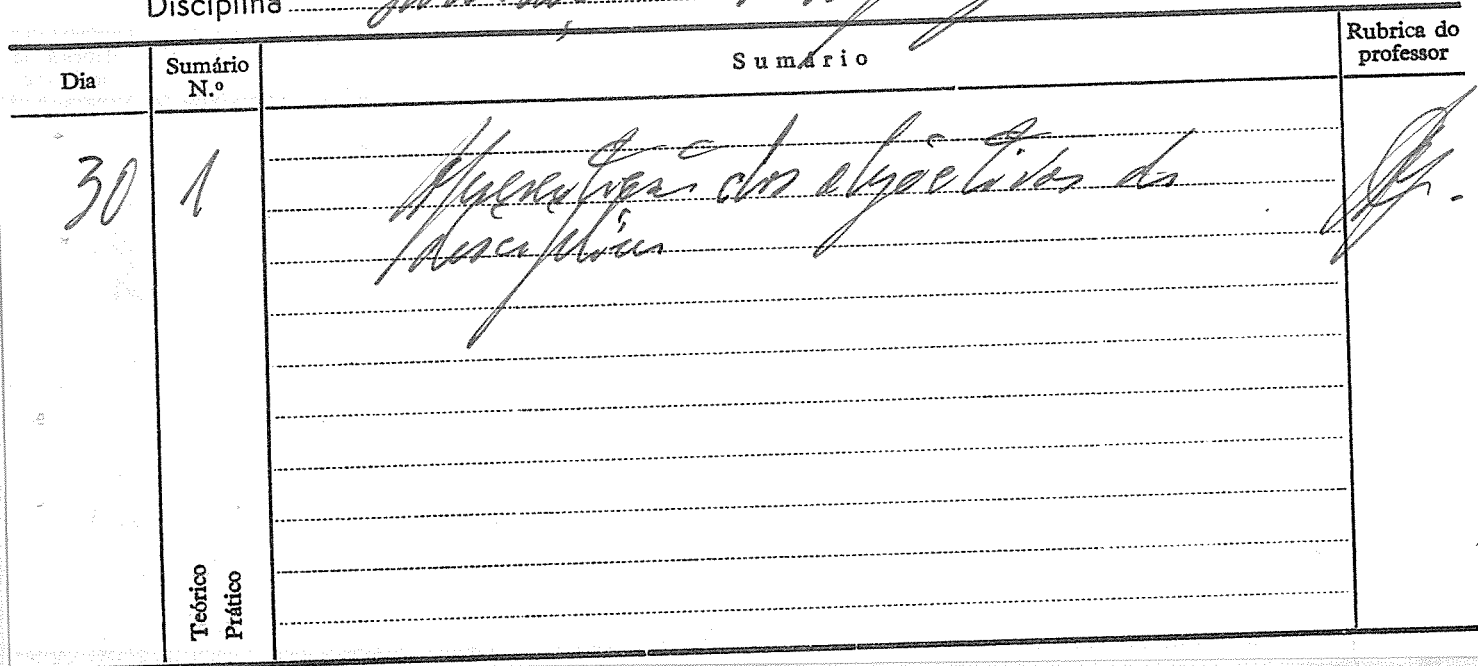 Disciplina
Dia
Sumário N.º
Sumário
Rubrica do professor
30 1 Apresentação dos objectivos da
disciplina
Teórico
Prático